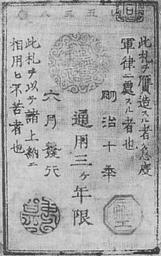 此札ヲ贋造スル者ハ急度
軍律ニ處スル者也
明治十年
通用三ケ年限
六月發行
此札ヲ以テ諸上納ニ
相用ヒ不苦者也